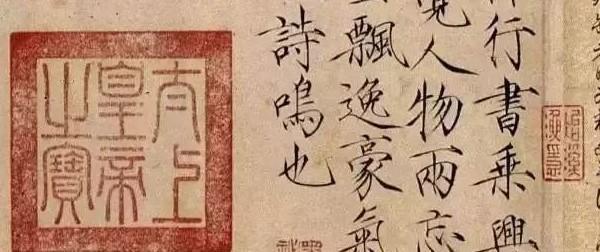 行書乘興
覺人物兩忘
飄逸豪氣
詩鳴也
太上
皇帝
之寶